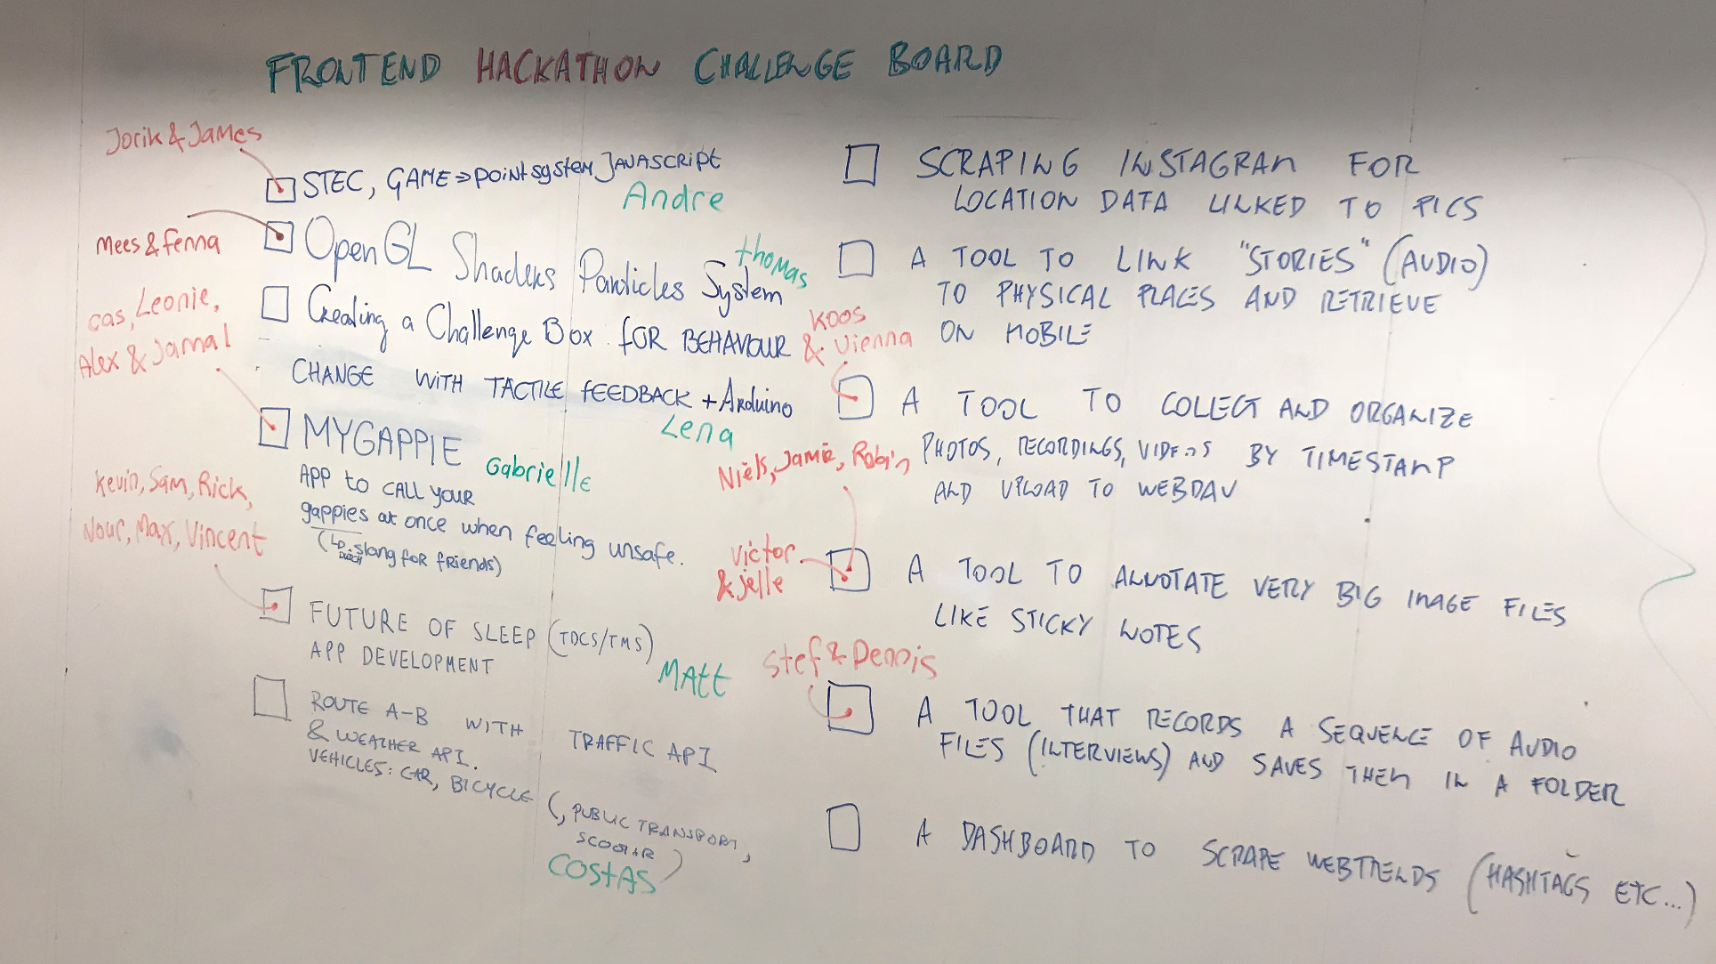 FRONTEND HACKATHON CHALLENGE BOARD
Jorik & James
STEC, GAME => point system JAVASCRIPT
Andre
Mees & fenna
OpenGL Shaders Particles System
thomas
cas, Leonie,
Alex & Jamal
Creating a Challenge Box FOR BEHAVIOUR
CHANGE WITH TACTILE FEEDBACK + Arduino
Lena
MYGAPPIE
Gabrielle
APP to CALL YOUR
gappies at once when feeling unsafe.
(↳ DUTCH slang for friends)
Kevin, Sam, Rick,
Nour, Max, Vincent
FUTURE OF SLEEP (TDCS/TMS)
APP DEVELOPMENT
Matt
ROUTE A-B WITH TRAFFIC API
& WEATHER API.
VEHICLES: CAR, BICYCLE (, PUBLIC TRANSPORT,
SCOOTER)
COSTAS
SCRAPING INSTAGRAM FOR
LOCATION DATA LINKED TO PICS
A TOOL TO LINK "STORIES" (AUDIO)
TO PHYSICAL PLACES AND RETRIEVE
ON MOBILE
KOOS
& Vienna
A TOOL TO COLLECT AND ORGANIZE
PHOTOS, RECORDINGS, VIDEOS BY TIMESTAMP
AND UPLOAD TO WEBDAV
Niels, Jamie, Robin
Victor
& jelle
A TOOL TO ANNOTATE VERY BIG IMAGE FILES
LIKE STICKY NOTES
Stef & Dennis
A TOOL THAT RECORDS A SEQUENCE OF AUDIO
FILES (INTERVIEWS) AND SAVES THEM IN A FOLDER
A DASHBOARD TO SCRAPE WEBTRENDS (HASHTAGS ETC...)